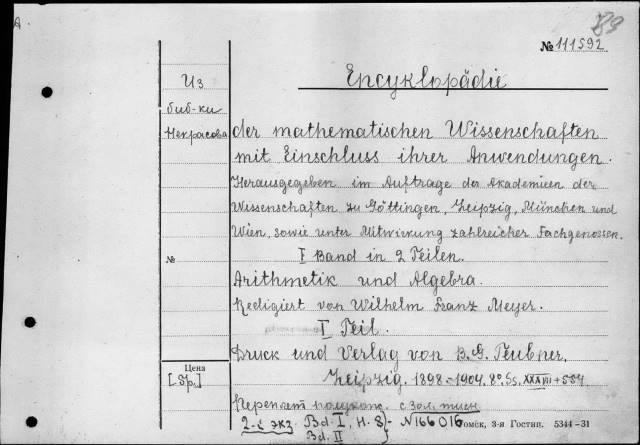 89
№ 111592
Из
биб-ки
Некрасова
Encyklopädie
der mathematischen Wissenschaften
mit Einschluss ihrer Anwendungen.
Herausgegeben im Auftrage der Akademien der
Wissenschaften zu Göttingen, Leipzig, München und
Wien, sowie unter Mitwirkung zahlreicher Fachgenossen.
I Band in 2 Teilen.
№
Arithmetik und Algebra.
Redigiert von Wilhelm Franz Meyer.
I Teil.
Druck und Verlag von B. G. Teubner,
Цена
Leipzig. 1898-1904. 8°. Ss. XXXVIII + 554
[5р.]
Переплет полукож. с зол. тисн
2-й экз. Bd. I, H. 8 - N166016
Bd. II
Томск, 3-я Гостип. 5344-31